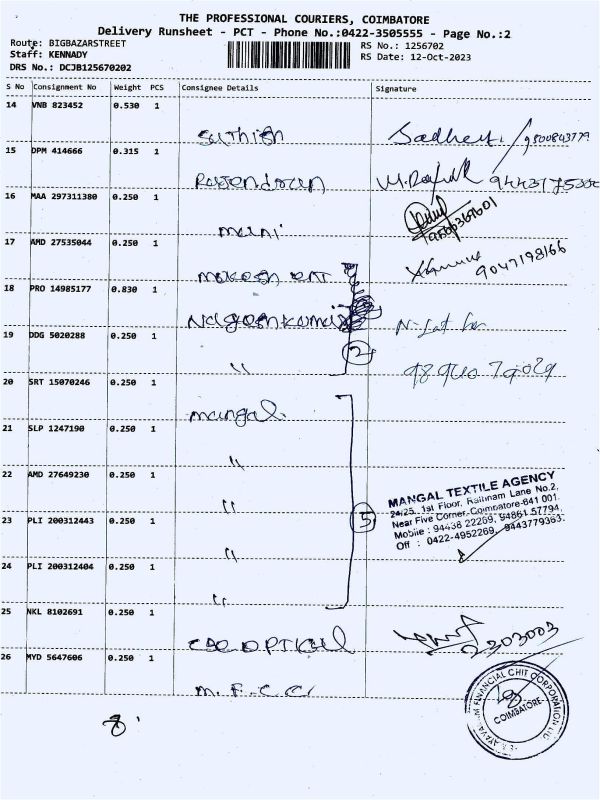 THE PROFESSIONAL COURIERS, COIMBATORE
Delivery Runsheet - PCT - Phone No.:0422-3505555 - Page No.:2
Route: BIGBAZARSTREET
Staff: KENNADY
DRS No.: DCJB125670202
RS No.: 1256702
RS Date: 12-Oct-2023
S No Consignment No Weight PCS Consignee Details Signature
14 VNB 823452 0.530 1
Sathish
15 DPM 414666 0.315 1
Rajendran
16 MAA 297311380 0.250 1
mani
17 AMD 27535044 0.250 1
mukesh
18 PRO 14985177 0.830 1
Nageshkumar
19 DDG 5020288 0.250 1
〃
2
20 SRT 15070246 0.250 1
mangal
21 SLP 1247190 0.250 1
〃
22 AMD 27649230 0.250 1
〃
MANGAL TEXTILE AGENCY
24/25, 1st Floor, Rathnam Lane No.2,
Near Five Corner, Coimbatore-641 001.
Mobile : 94438 22269, 94861 57794,
Off : 0422-4952269, 9443779363.
23 PLI 200312443 0.250 1
5
〃
24 PLI 200312404 0.250 1
〃
25 NKL 8102691 0.250 1
OPTICAL
2303003
26 MYD 5647606 0.250 1
M.F.C.C
FINANCIAL CHIT CORPORATION
COIMBATORE
8